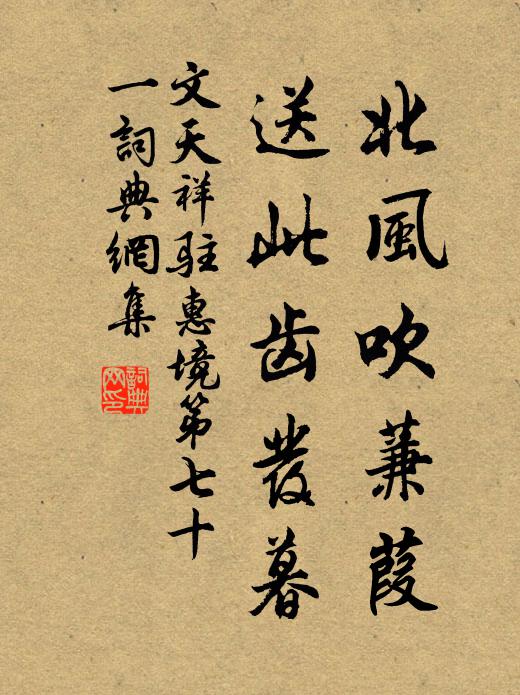 北風吹蒹葭
送此齿發暮
文天祥駐惠境第七十
一詞典網集
詞典网印